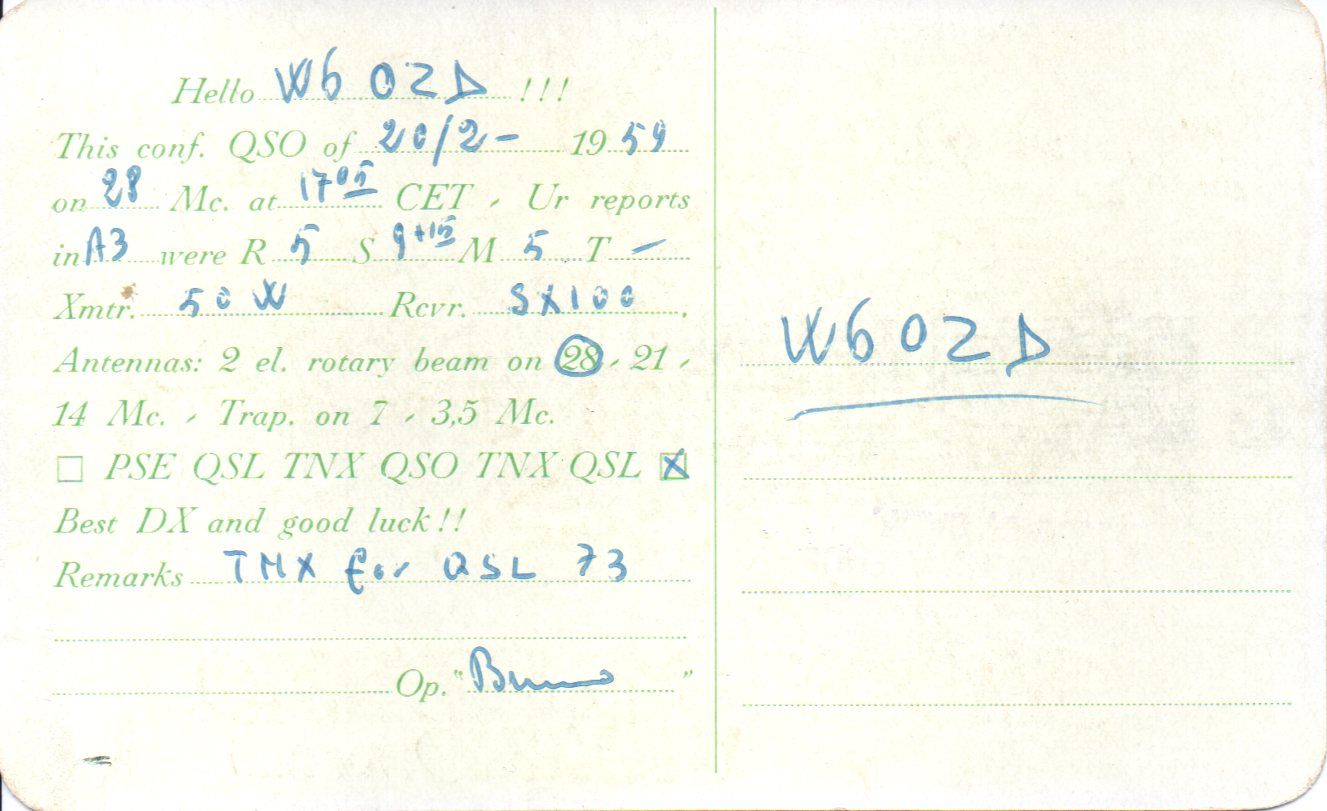 Hello W6OZD !!!
This conf. QSO of 20/2- 1959
on 28 Mc. at 17 05 CET - Ur reports
in A3 were R 5 S 9+15 M 5 T -
Xmtr. 50 W Rcvr. SX100.
Antennas: 2 el. rotary beam on 28 - 21 -
14 Mc. - Trap. on 7 - 3,5 Mc.
PSE QSL TNX QSO TNX QSL X
Best DX and good luck !!
Remarks TNX for QSL 73
Op. "Bruno"
W6OZD